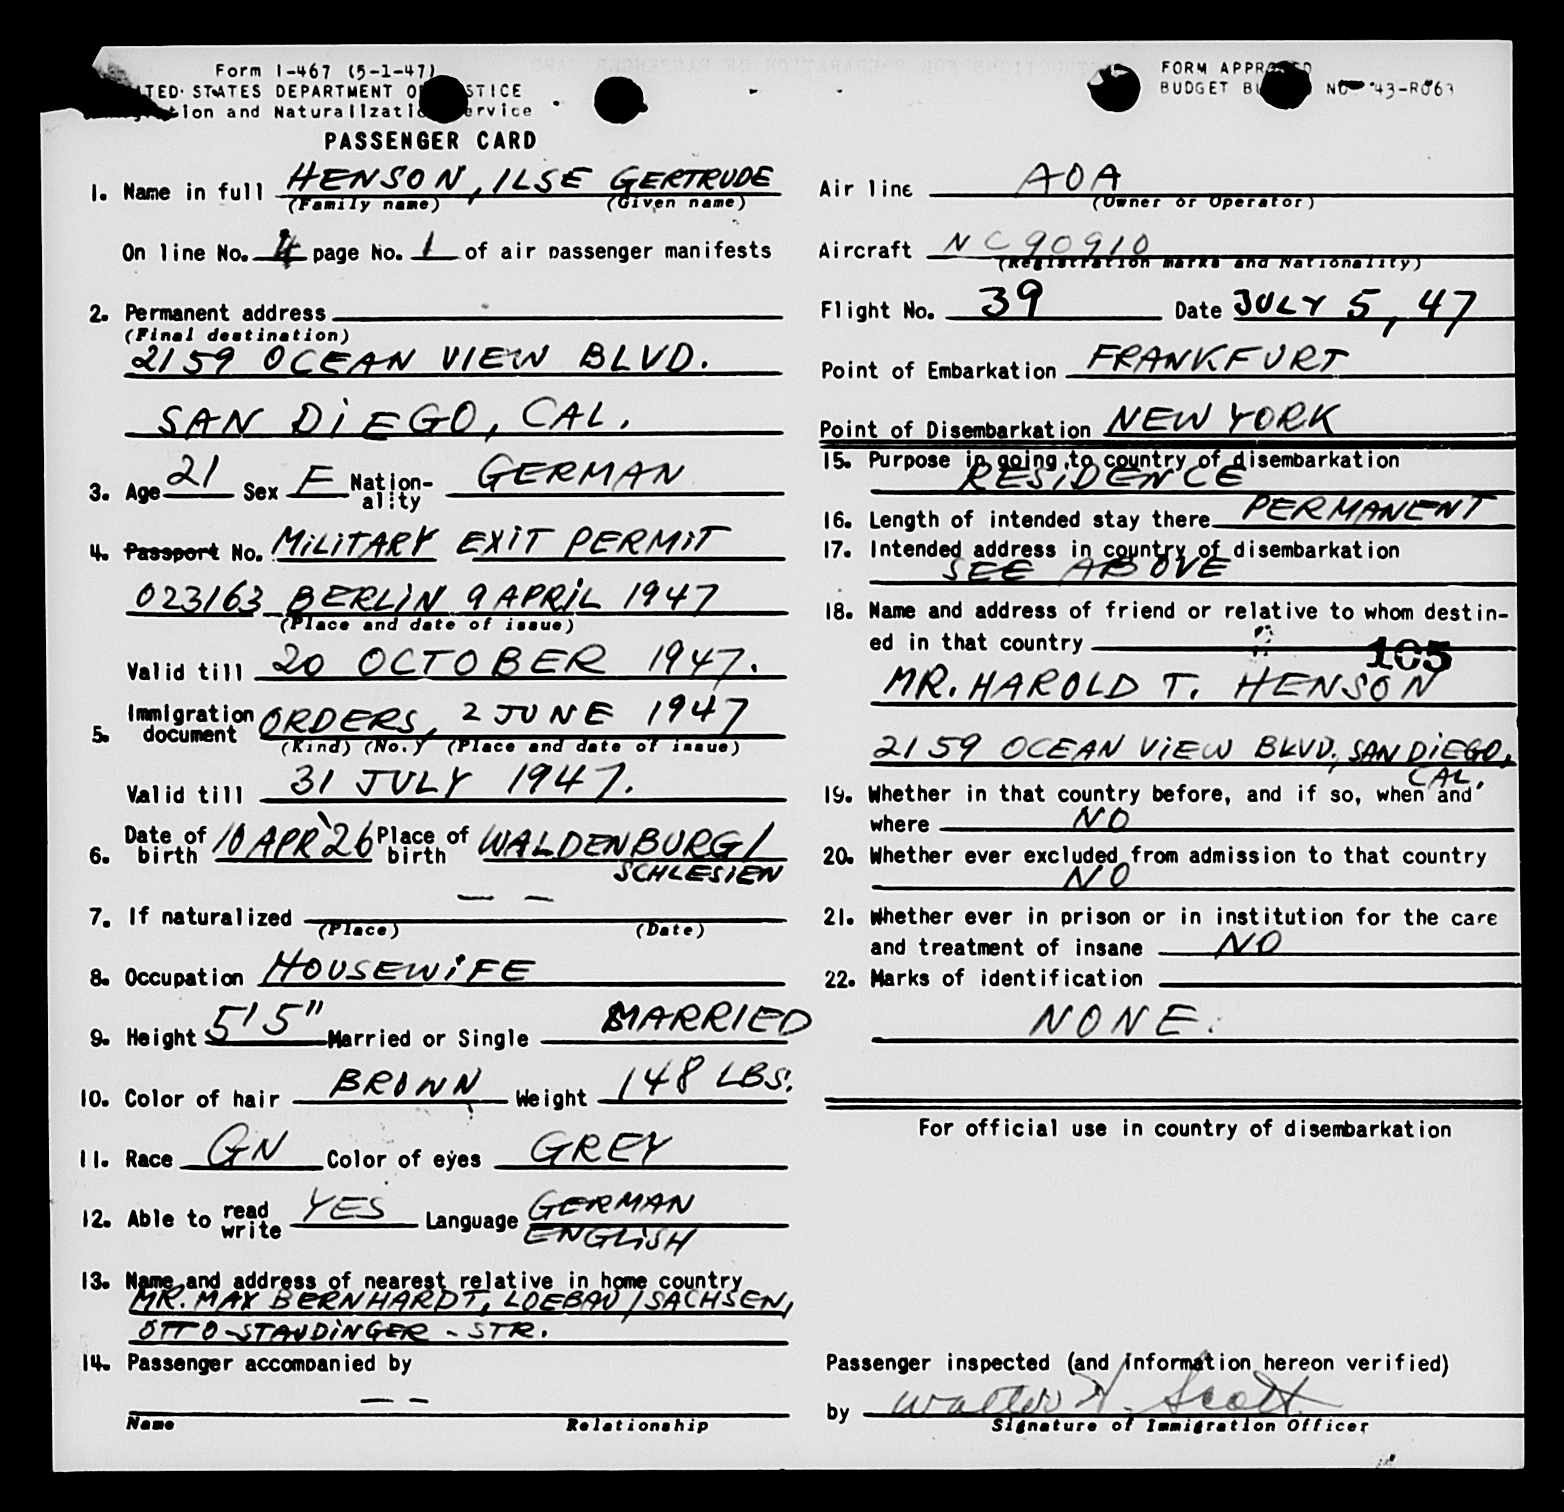 Form I-467 (5-1-47)
STATES DEPARTMENT
and Naturalization Service
PASSENGER CARD
1. Name in full HENSON, ILSE GERTRUDE
(Family name) (Given name)
On line No. 4 page No. 1 of air passenger manifests
2. Permanent address
(Final destination)
2159 OCEAN VIEW BLVD.
SAN DIEGO, CAL.
3. Age 21 Sex F Nation-ality GERMAN
4. Passport No. MILITARY EXIT PERMIT
023163 BERLIN 9 APRIL 1947
(Place and date of issue)
Valid till 20 OCTOBER 1947.
5. Immigration document ORDERS, 2 JUNE 1947
(Kind) (No.) (Place and date of issue)
Valid till 31 JULY 1947.
6. Date of birth 10 APR '26 Place of birth WALDENBURG/
SCHLESIEN
7. If naturalized — —
(Place) (Date)
8. Occupation HOUSEWIFE
9. Height 5'5" Married or Single MARRIED
10. Color of hair BROWN Weight 148 LBS.
11. Race GN Color of eyes GREY
12. Able to read write YES Language GERMAN
ENGLISH
13. Name and address of nearest relative in home country
MR. MAX BERNHARDT, LOEBAU/SACHSEN,
OTTO-STAUDINGER-STR.
14. Passenger accompanied by
— —
Name Relationship
FORM APPROVED
BUDGET NO. 43-R063
Air line AOA
(Owner or Operator)
Aircraft NC90910
(Registration marks and Nationality)
Flight No. 39 Date JULY 5, 47
Point of Embarkation FRANKFURT
Point of Disembarkation NEW YORK
15. Purpose in going to country of disembarkation
RESIDENCE
16. Length of intended stay there PERMANENT
17. Intended address in country of disembarkation
SEE ABOVE
18. Name and address of friend or relative to whom destin-
ed in that country
105
MR. HAROLD T. HENSON
2159 OCEAN VIEW BLVD., SAN DIEGO,
CAL.
19. Whether in that country before, and if so, when and
where NO
20. Whether ever excluded from admission to that country
NO
21. Whether ever in prison or in institution for the care
and treatment of insane NO
22. Marks of identification
NONE.
For official use in country of disembarkation
Passenger inspected (and information hereon verified)
by Walter H. Scott
Signature of Immigration Officer